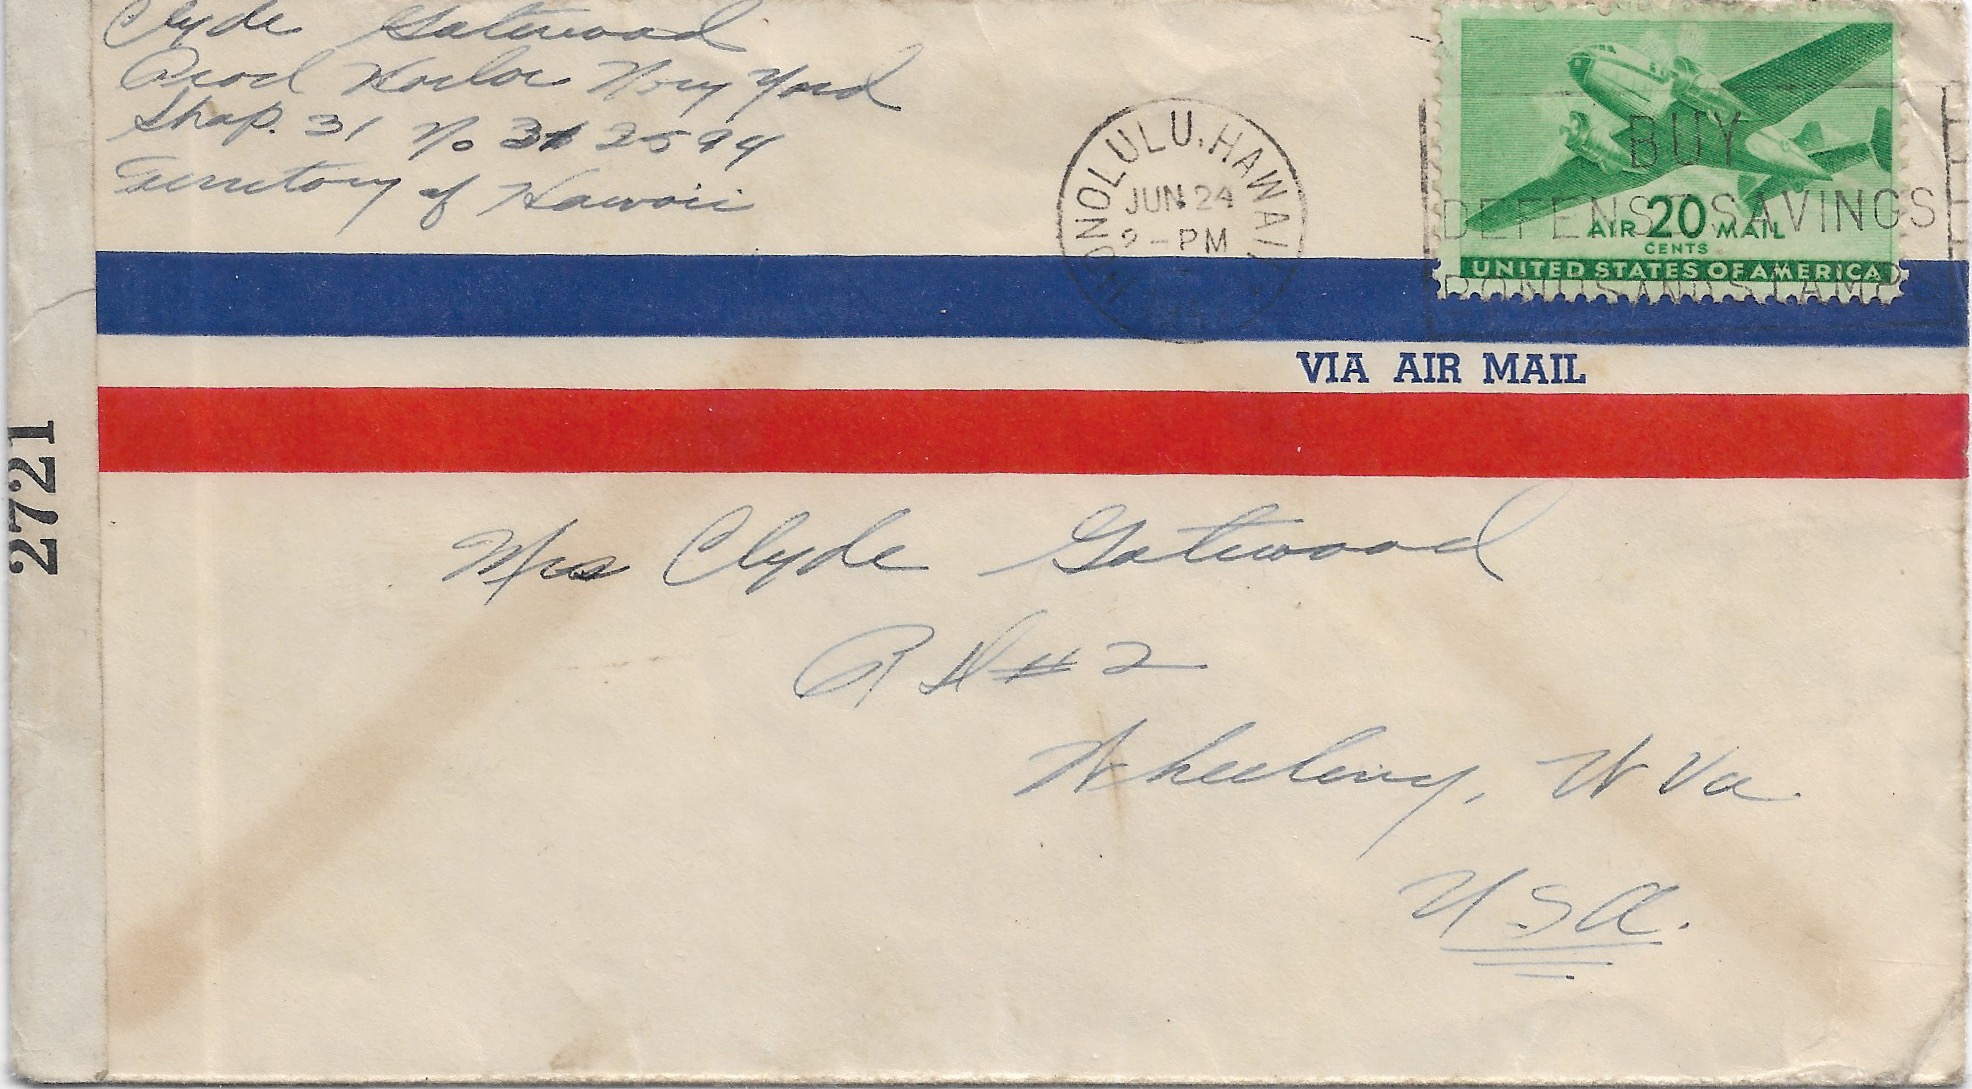 Clyde Gatewood
Pearl Harbor Navy Yard
Shop. 31 No 31 2594
Territory of Hawaii
HONOLULU, HAWAII
JUN 24
2-PM
BUY
DEFENSE SAVINGS
BONDS AND STAMPS
AIR 20 MAIL
CENTS
UNITED STATES OF AMERICA
VIA AIR MAIL
2721
Mrs Clyde Gatewood
R D # 2
Wheeling, W Va.
U.S.A.